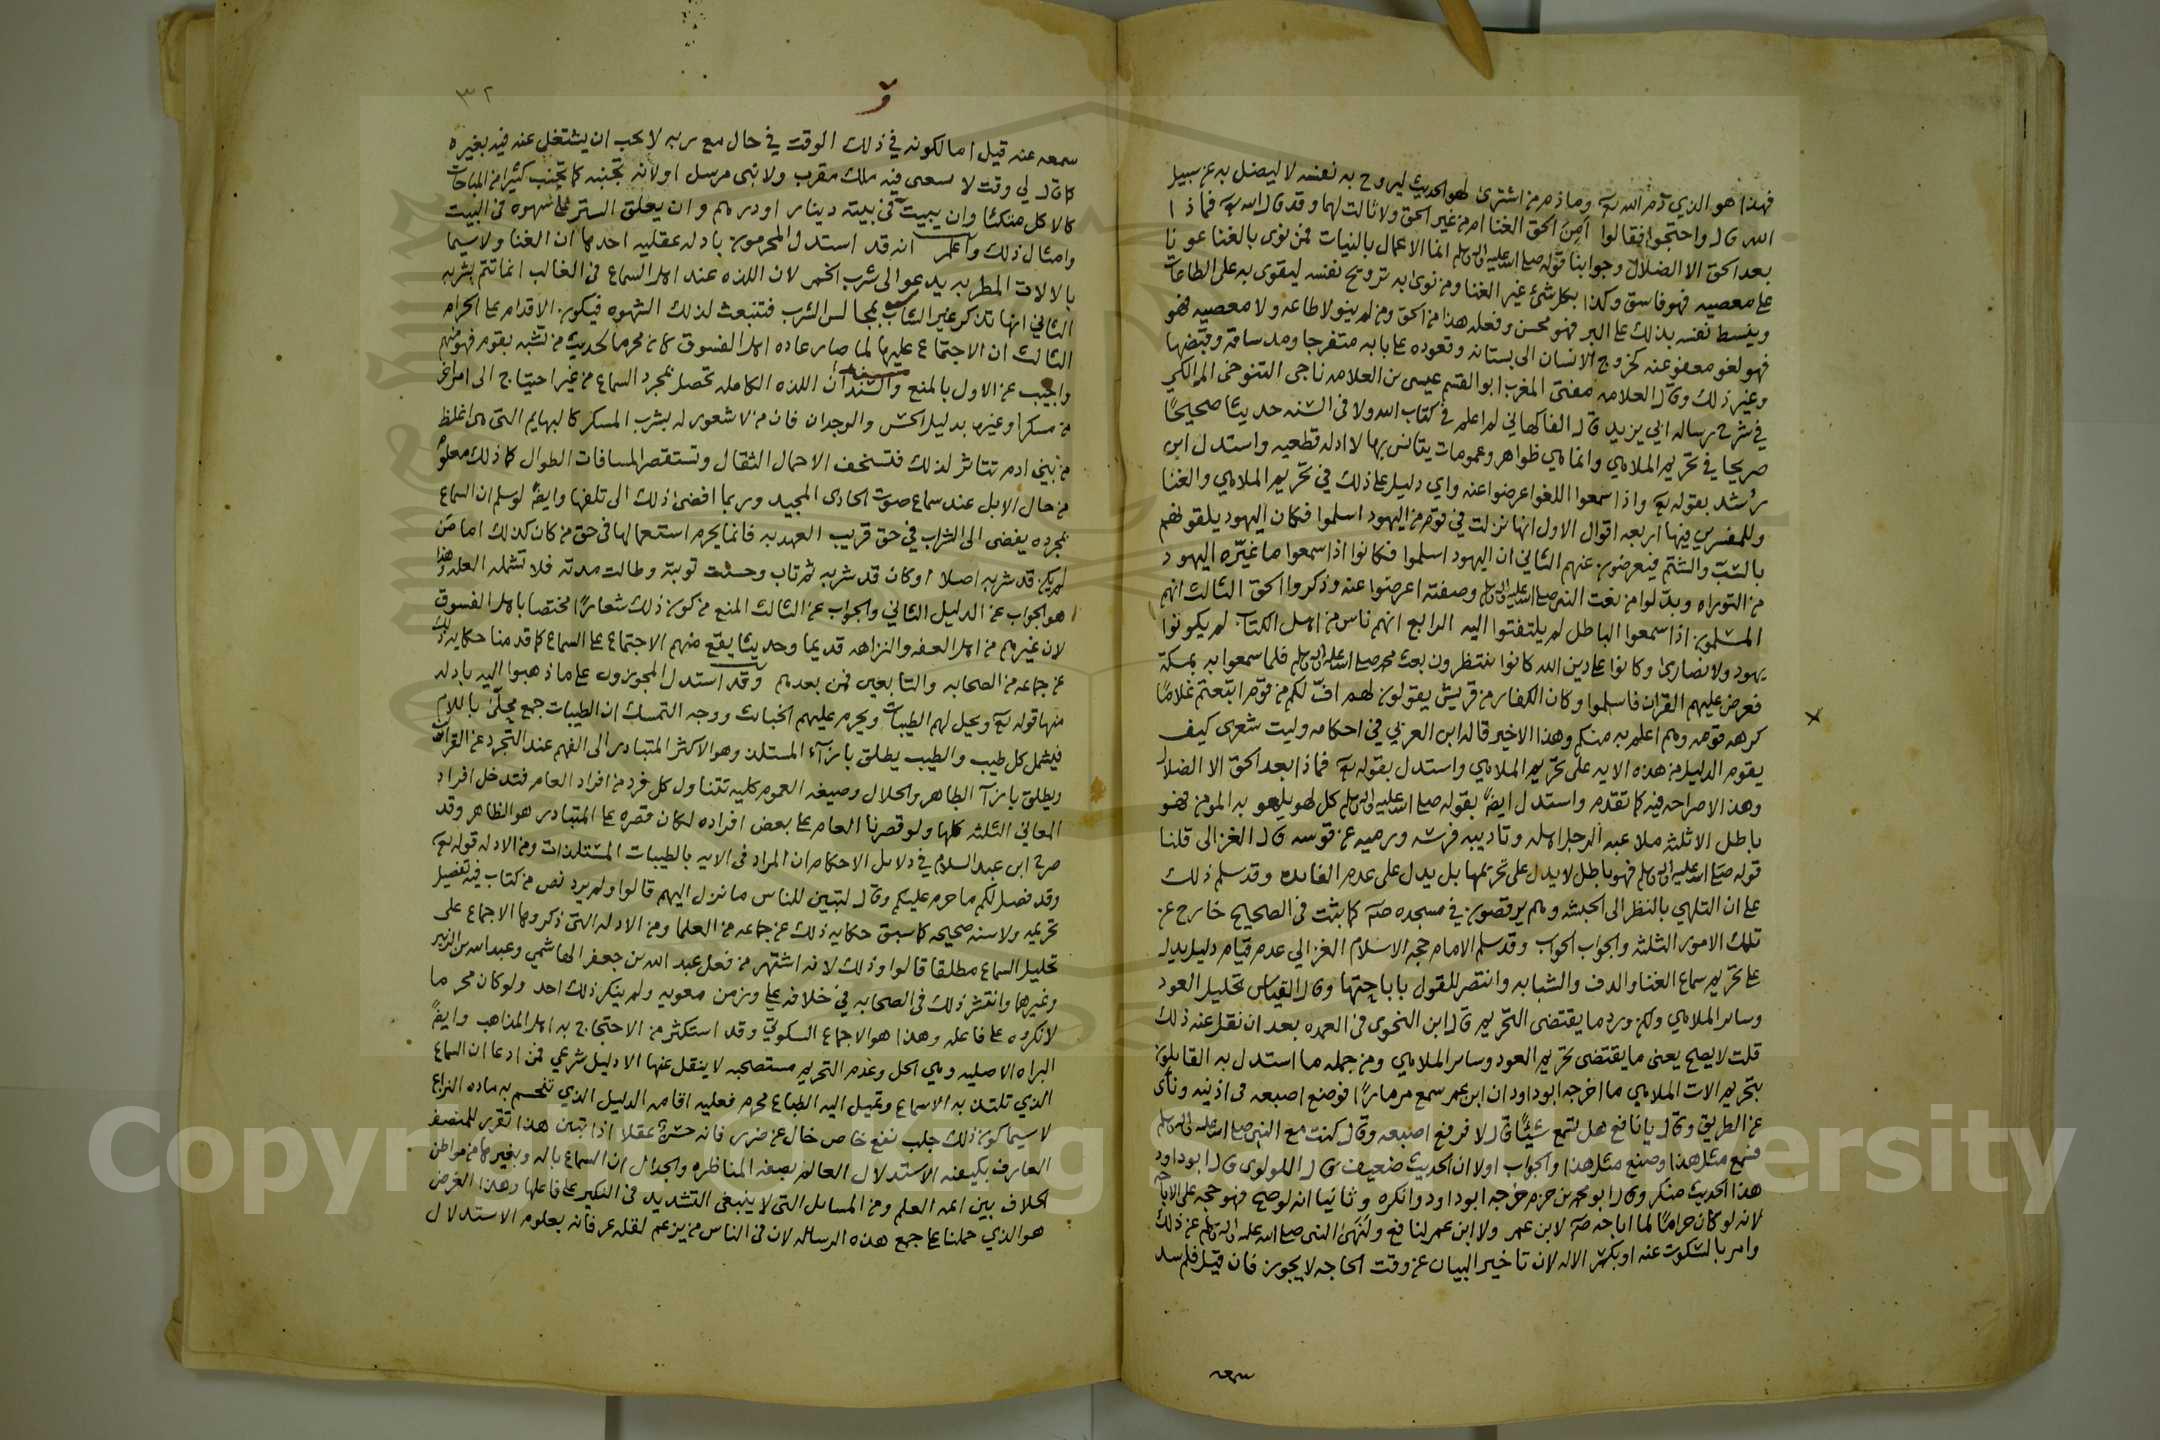 فهذا هو الذي ذمه الله تع وما ذم من اشترى لهو الحديث ليروح به نفسه لا ليضل به عن سبيل
الله قال واحتجوا فقالوا أمن الحق الغنا ام من غير الحق ولا ثالث لهما وقد قال الله تع فماذا
بعد الحق الا الضلال وجوابنا قوله صلى الله عليه واله وسلم انما الاعمال بالنيات فمن نوى بالغنا عونا
على معصيه فهو فاسق وكذا بكل شئ غير الغنا ومن نوى به ترويح نفسه ليقوى به على الطاعات
وينسط نفسه بذلك على البر فهو محسن وفعله هذا من الحق ومن لم ينو لا طاعه ولا معصيه فهو
فهو لغو معفو عنه كخروج الانسان الى بستانه وقعوده على بابه متفرجا ومد ساقه وقبضها
وغير ذلك وقال العلامه مفتى المغرب ابو القسم عيسى بن العلامه ناجى التنوخى المالكي
في شرح رساله ابي يزيد قال الفاكهاني لم اعلم في كتاب الله ولا في السنه حديثا صحيحا
صريحا في تحريم الملاهي وانما هي ظواهر وعمومات يتانس بها لا ادله قطعيه واستدل ابن
رشد بقوله تع واذا سمعوا اللغو اعرضوا عنه واي دليل على ذلك في تحريم الملاهي والغنا
وللمفسرين فيها اربعه اقوال الاول انها نزلت في قوم من اليهود اسلموا فكان اليهود يلقونهم
بالسب والشتم فيعرضون عنهم الثاني ان اليهود اسلموا فكانوا اذا سمعوا ما غيره اليهود
من التوراه وبدلوا من نعت النبي صلى الله عليه واله وسلم وصفته اعرضوا عنه وذكروا الحق الثالث انهم
المسلمون اذا سمعوا الباطل لم يلتفتوا اليه الرابع انهم ناس من اهل الكتاب لم يكونوا
يهود ولا نصارى وكانوا على دين الله كانوا ينتظرون بعث محمد صلى الله عليه واله وسلم فلما سمعوا به بمكة
فعرض عليهم القران فاسلموا وكان الكفار من قريش يقولون لهم اف لكم من قوم اتبعتم غلاما
كرهه قومه وهم اعلم به منكم وهذا الاخير قاله ابن العربي في احكامه وليت شعرى كيف
يقوم الدليل من هذه الايه على تحريم الملاهي واستدل بقوله تع فماذا بعد الحق الا الضلال
وهذا لا صراحه فيه كما تقدم واستدل ايضا بقوله صلى الله عليه واله وسلم كل لهو يلهو به المومن فهو
باطل الا ثلثه ملاعبه الرجل اهله وتاديبه فرسه ورميه عن قوسه قال الغزالى قلنا
قوله صلى الله عليه واله وسلم فهو باطل لا يدل على تحريمها بل يدل على عدم الفايده وقد سلم ذلك
على ان التلهي بالنظر الى الحبشه وهم يرقصون في مسجده صلم كما ثبت في الصحيح خارج عن
تلك الامور الثلثه والجواب الجواب وقد سلم الامام حجه الاسلام الغزالي عدم قيام دليل يدل
على تحريم سماع الغنا والدف والشبابه وانتصر للقول باباحتها وقال القياس تحليل العود
وساير الملاهي ولكن ورد ما يقتضى التحريم قال ابن النحوى في العمده بعد ان نقل عنه ذلك
قلت لا يصح يعنى ما يقتضى تحريم العود وساير الملاهي ومن جمله ما استدل به القايلون
بتحريم الات الملاهي ما اخرجه ابو داود ان ابن عمر سمع مزمارا فوضع اصبعه في اذنيه ونأى
عن الطريق وقال يا نافع هل تسمع شيئا قال لا فرفع اصبعه وقال كنت مع النبي صلى الله عليه واله وسلم
فسمع مثل هذا وصنع مثل هذا والجواب اولا ان الحديث ضعيف قال اللولوى قال ابو داود
هذا الحديث منكر وقال ابو محمد بن حزم خرجه ابو داود وانكره وثانيا انه لو صح فهو حجه على الاباحه
لانه لو كان حراما لما اباحه صلم لابن عمر ولا ابن عمر لنافع ولنهى النبي صلى الله عليه واله وسلم عن ذلك
وامر بالسكوت عنه او بكسر الاله لان تاخير البيان عن وقت الحاجه لا يجوز فان قيل فلم سد
سمعه
٣٢
سمعه عنه قيل اما لكونه في ذلك الوقت في حال مع ربه لا يحب ان يشتغل عنه فيه بغيره
كما قال لي وقت لا يسعى فيه ملك مقرب ولا نبى مرسل او لانه تجنبه كما تجنب كثيرا من المباحات
كالاكل متكئا وان يبيت في بيته دينار او درهم وان يعلق الستر على سهوه في البيت
وامثال ذلك واعلم انه قد استدل المحرمون بادله عقليه احدها ان الغنا ولا سيما
بالالات المطربه يدعو الى شرب الخمر لان اللذه عند اهل السماع في الغالب انما تتم بشربه
الثاني انها تذكر غير الشاب بمجالس الشرب فتنبعث لذلك الشهوه فيكون الاقدام على الحرام
الثالث ان الاجتماع عليها لما صار عاده اهل الفسوق كان محرما لحديث من تشبه بقوم فهو منهم
واجيب عن الاول بالمنع والسند ان اللذه الكامله تحصل بمجرد السماع من غير احتياج الى امر اخر
من مسكر وغيره بدليل الحس والوجدان فان من لا شعور له بشرب المسكر كالبهايم التى هى اغلظ
من بني ادم تتاثر لذلك فتستخف الاحمال الثقال وتستقصر المسافات الطوال كما ذلك معلوم
من حال الابل عند سماع صوت الحادى المجيد وربما افضى ذلك الى تلفها وايضا لو سلم ان السماع
بمجرده يفضى الى الشراب في حق قريب العهد به فانما يحرم استعمالها في حق من كان كذلك اما من
لم يكن قد شربه اصلا او كان قد شربه ثم تاب وحسنت توبته وطالت مدته فلا تشمله العله وهذا
هو الجواب عن الدليل الثاني والجواب عن الثالث المنع من كون ذلك شعارا مختصا باهل الفسوق
لان غيرهم من اهل العفه والنزاهه قديما وحديثا يقع منهم الاجتماع على السماع كما قدمنا حكايه ذلك
عن جماعه من الصحابه والتابعين فمن بعدهم وقد استدل المجوزون على ما ذهبوا اليه بادله
منها قوله تع ويحل لهم الطيبات ويحرم عليهم الخبائث ووجه التمسك ان الطيبات جمع محلى باللام
فيشمل كل طيب والطيب يطلق بازاء المستلذ وهو الاكثر المتبادر الى الفهم عند التجرد عن القراين
ويطلق بازآ الطاهر والحلال وصيغه العموم كليه تتناول كل فرد من افراد العام فتدخل افراد
المعاني الثلثه كلها ولو قصرنا العام على بعض افراده لكان قصره على المتبادر هو الظاهر وقد
صرح ابن عبد السلام في دلايل الاحكام ان المراد في الايه بالطيبات المستلذات ومن الادله قوله تع
وقد فصل لكم ما حرم عليكم وقال لتبين للناس ما نزل اليهم قالوا ولم يرد نص من كتاب فيه تفصيل
تحريمه ولا سنه صحيحه كما سبق حكايه ذلك عن جماعه من العلما ومن الادله التى ذكروها الاجماع على
تحليل السماع مطلقا قالوا وذلك لانه اشتهر من فعل عبد الله بن جعفر الهاشمي وعبد الله بن الزبير
وغيرهما وانتشر ذلك في الصحابه في خلافه على وزمن معويه ولم ينكر ذلك احد ولو كان محرما
لانكروه على فاعله وهذا هو الاجماع السكوتي وقد استكثر من الاحتجاج به اهل المذاهب وايضا
البراه الاصليه وهي الحل وعدم التحريم مستصحبه لا ينقل عنها الا دليل شرعي فمن ادعا ان السماع
الذي تلتذ به الاسماع وتميل اليه الطباع محرم فعليه اقامه الدليل الذي تنحسم به ماده النزاع
لا سيما كون ذلك جلب نفع خاص خال عن ضرر فانه حسن عقلا اذا تبين هذا تقرر للمنصف
العارف بكيفيه الاستدلال العالم بصفه المناظره والجدال ان السماع باله وبغيرها من مواطن
الخلاف بين ائمه العلم ومن المسايل التي لا ينبغى التشديد في النكير على فاعلها وهذا الغرض
هو الذي حملنا على جمع هذه الرساله لان في الناس من يزعم لقله عرفانه بعلوم الاستدلال
Copyright © King Saud University